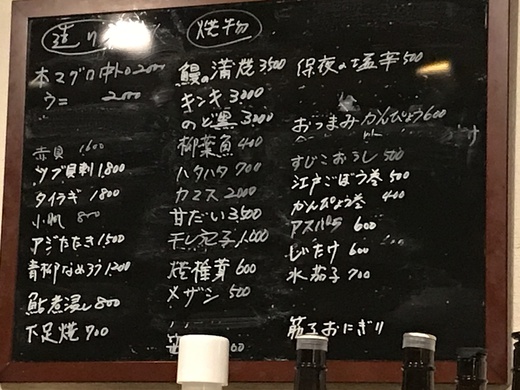 造り
本マグロ中トロ 2000
ウニ 2000
赤貝 1600
ツブ貝刺 1,800
タイラギ 1800
小肌 800
アジたたき 1500
青柳なめろう 1200
鮎煮浸し 800
下足焼 700
焼物
鰻の蒲焼 3500
キンキ 3000
のど黒 3000
柳葉魚 400
ハタハタ 700
カマス 2000
甘だい 3500
干し宛子 1,000
焼椎茸 600
メザシ 500
保夜の塩辛 500
おつまみかんぴょう 600
すじこおろし 500
江戸ごぼう巻 500
かんぴょう巻 400
アスパラ 600
しいたけ 600
水茄子 700
筋子おにぎり